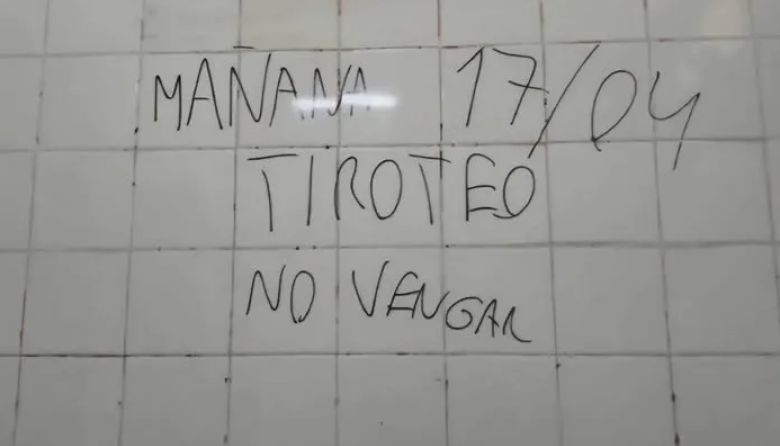 MAÑANA 17/04
TIROTEO
NO VENGAN